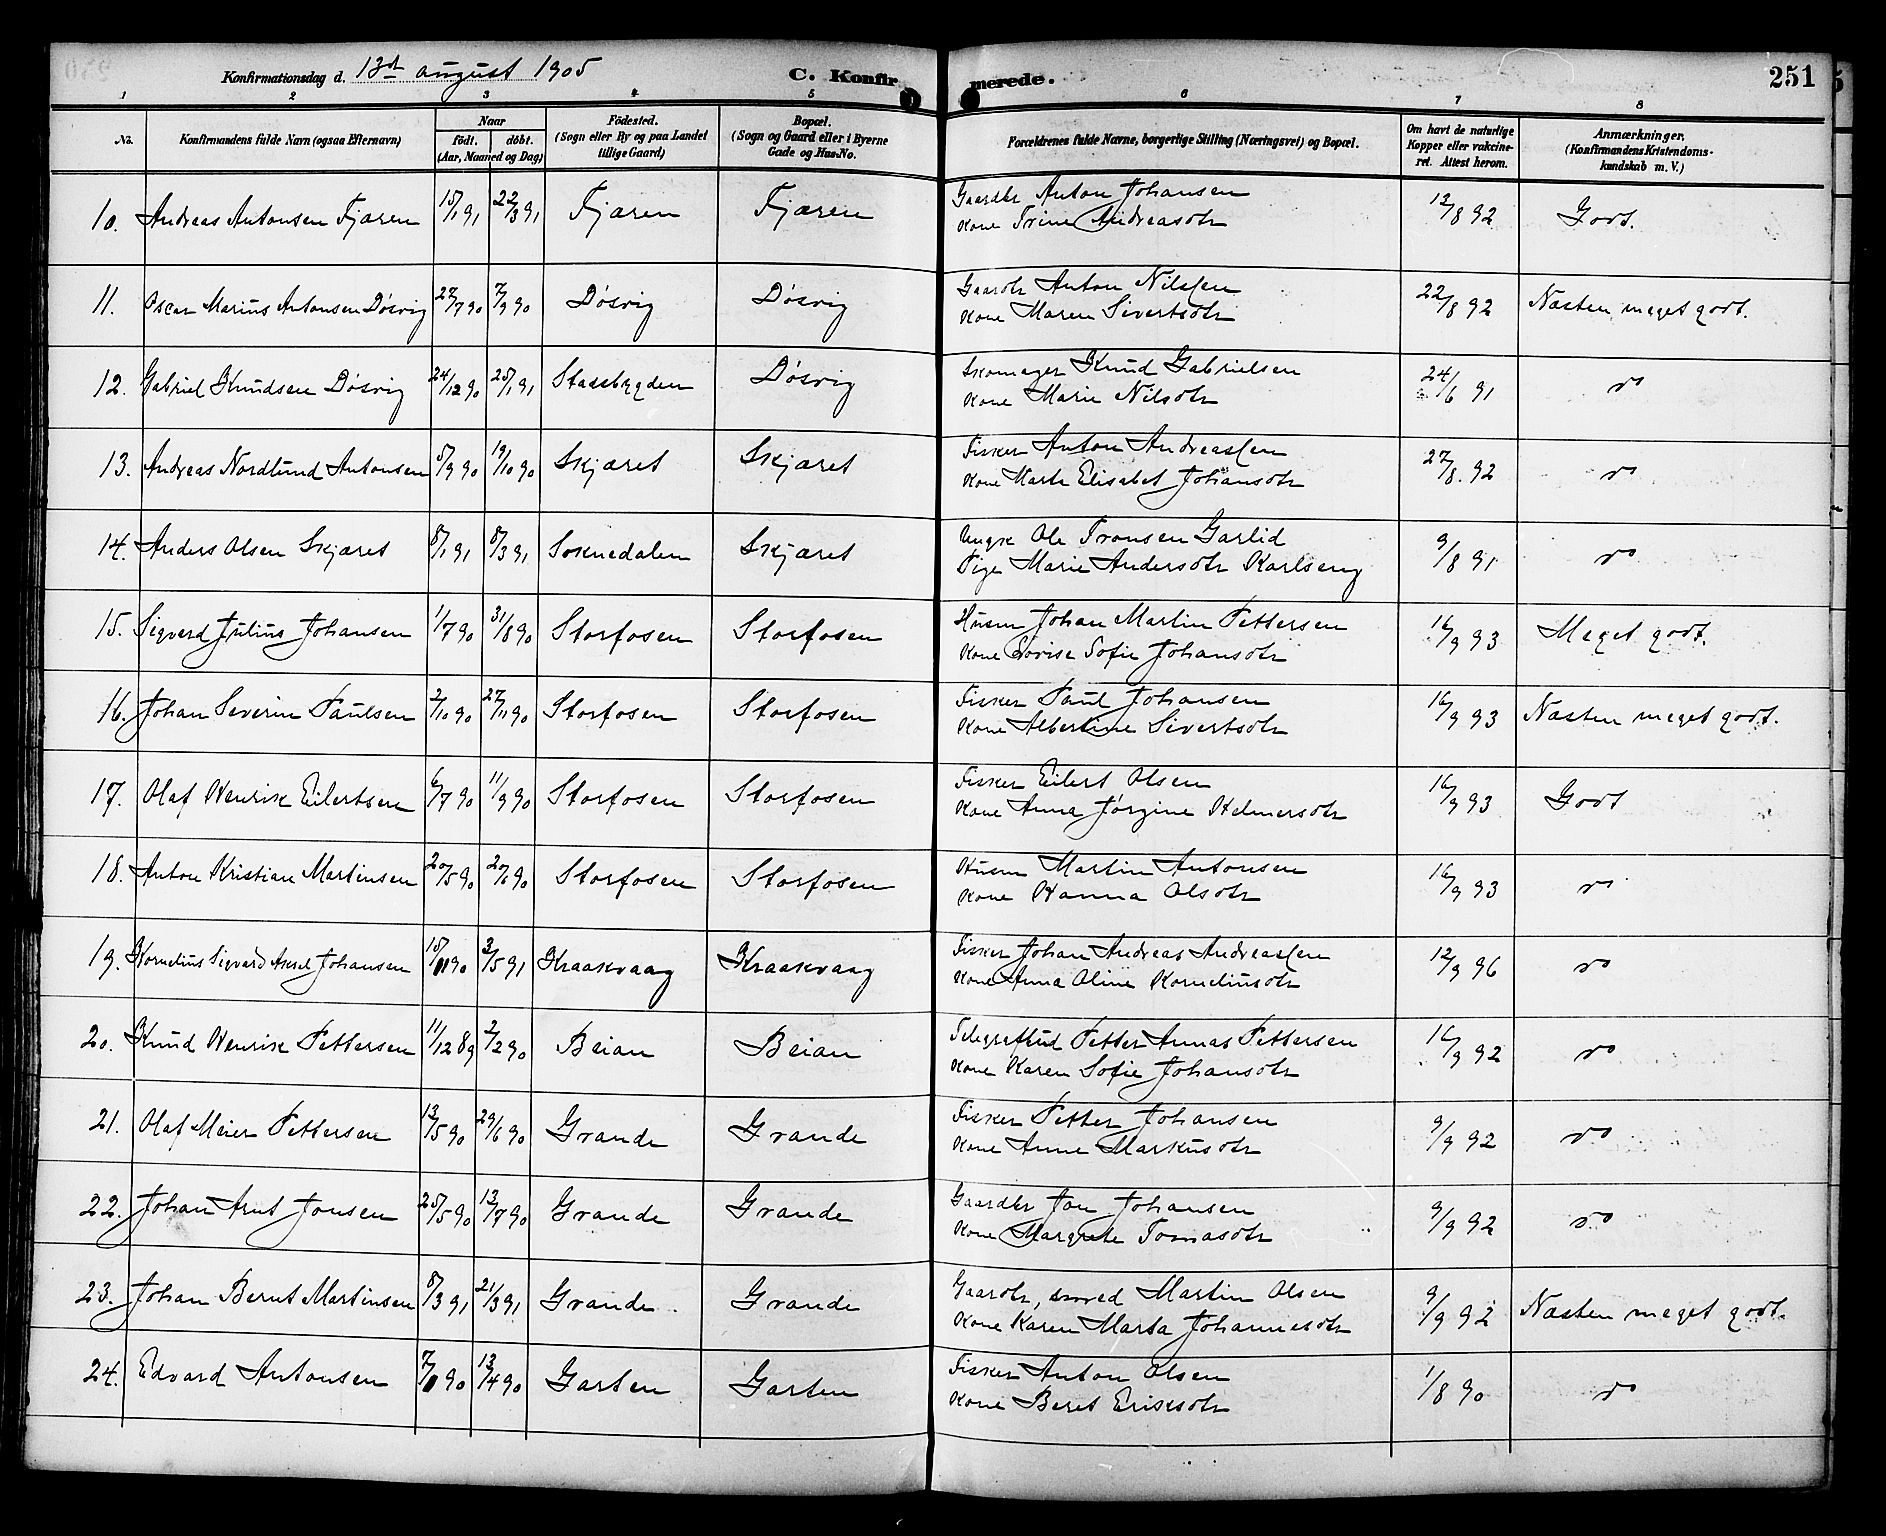 Konfirmationsdag d. 13de august 1905 C. Konfirmerede. 251
1 2 3 4 5 6 7 8
No. Konfirmandens fulde Navn (ogsaa Efternavn) Naar födt. döbt. (Aar, Maaned og Dag) Födested. (Sogn eller By og paa Landet tillige Gaard) Bopæl. (Sogn og Gaard eller i Byerne Gade og Hus-No. Forældrenes fulde Navne, borgerlige Stilling (Næringsvei) og Bopæl. Om havt de naturlige Kopper eller vakcineret. Attest herom. Anmærkninger. (Konfirmandens Kristendomskundskab m. V.)
10. Andreas Antonsen Fjæren 15/1 91 22/3 91 Fjæren Fjæren Gaardbr Anton Johansen 12/8 92 Godt.
Kone Trine Andreasdtr
11. Oscar Marius Antonsen Døsvig 27/7 90 7/9 90 Døsvig Døsvig Gaardbr Anton Nilssen 22/8 92 Næsten meget godt.
Kone Maren Sivertsdtr
12. Gabriel Knudsen Døsvig 24/12 90 25/1 91 Stadsbygden Døsvig Skomager Knud Gabrielsen 24/6 91 do
Kone Marie Nilsdtr
13. Andreas Nordlund Antonsen 5/9 90 19/10 90 Skjæret Skjæret Fisker Anton Andreassen 27/8. 92 do
Kone Marta Elisabet Johansdtr
14. Anders Olsen Skjæret 8/1 91 8/3 91 Soknedalen Skjæret Ungk Ole Tronsen Garlid 9/8 91 do
Pige Marie Andersdtr Karlseng
15. Sigverd Julius Johansen 1/7 90 31/8 90 Storfosen Storfosen Husm Johan Martin Pettersen 16/9 93 Meget godt.
Kone Lovise Sofie Johansdtr
16. Johan Severin Paulsen 2/10 90 27/11 90 Storfosen Storfosen Fisker Paul Johansen 16/9 93 Næsten meget godt.
Kone Albertine Sivertsdtr
17. Olaf Henrik Eilertsen 6/7 90 11/9 90 Storfosen Storfosen Fisker Eilert Olsen 16/9 93 Godt
Kone Anna Jørgine Helmersdtr
18. Anton Kristian Martinsen 20/5 90 20/6 90 Storfosen Storfosen Husm Martin Antonsen 16/9 93 do
Kone Hanna Olsdtr
19. Kornelius Sigvard Aksel Johansen 15/11 90 3/5 91 Kraakvaag Kraakvaag Fisker Johan Andreas Andreassen 12/9 96 do
Kone Anna Oline Korneliusdtr
20. Knud Henrik Pettersen 11/12 89 2/2 90 Beian Beian Telegrafbud Petter Annas Pettersen 16/9 92 do
Kone Karen Sofie Johansdtr
21. Olaf Meier Pettersen 13/5 90 29/6 90 Grande Grande Fisker Petter Johansen 9/9 92 do
Kone Anne Markusdtr
22. Johan Arnt Jonsen 25/5 90 13/7 90 Grande Grande Gaardbr Jon Johansen 9/9 92 do
Kone Margrete Tomasdtr
23. Johan Bernt Martinsen 8/3 91 21/3 91 Grande Grande Gaardbr, smed Martin Olsen 9/9 92 Næsten meget godt.
Kone Karen Marta Johannesdtr
24. Edvard Antonsen 90 13/4 90 Garten Garten Fisker Anton Olsen 1/8 90 do
Kone Beret Eriksdtr